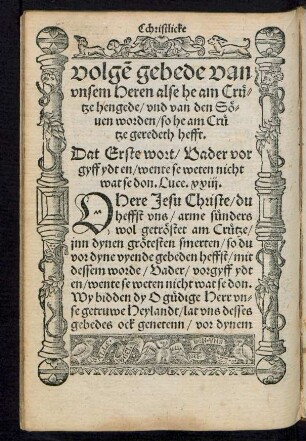 Cchristlicke
volgē gebede van
vnsem Heren alse he am Crü-
tze hengede/ vnd van den Sö-
uen worden/ so he am Crü
tze geredeth hefft.
Dat Erste wort/ Vader vor
gyff ydt en/ wente se weten nicht
wat se don. Luce. xxiij.
O Here Jesu Christe/ du
heffst vns/ arme sünders
wol getröstet am Crütze/
jnn dynen grötesten smerten/ so du
vor dyne vyende gebeden heffst/ mit
dessem worde/ Vader/ vorgyff ydt
en/ wente se weten nicht wat se don.
Wy bidden dy O güdige Herr vn-
se getruwe Heylandt/ lat vns desses
gebedes ock genetenn/ vor dynem